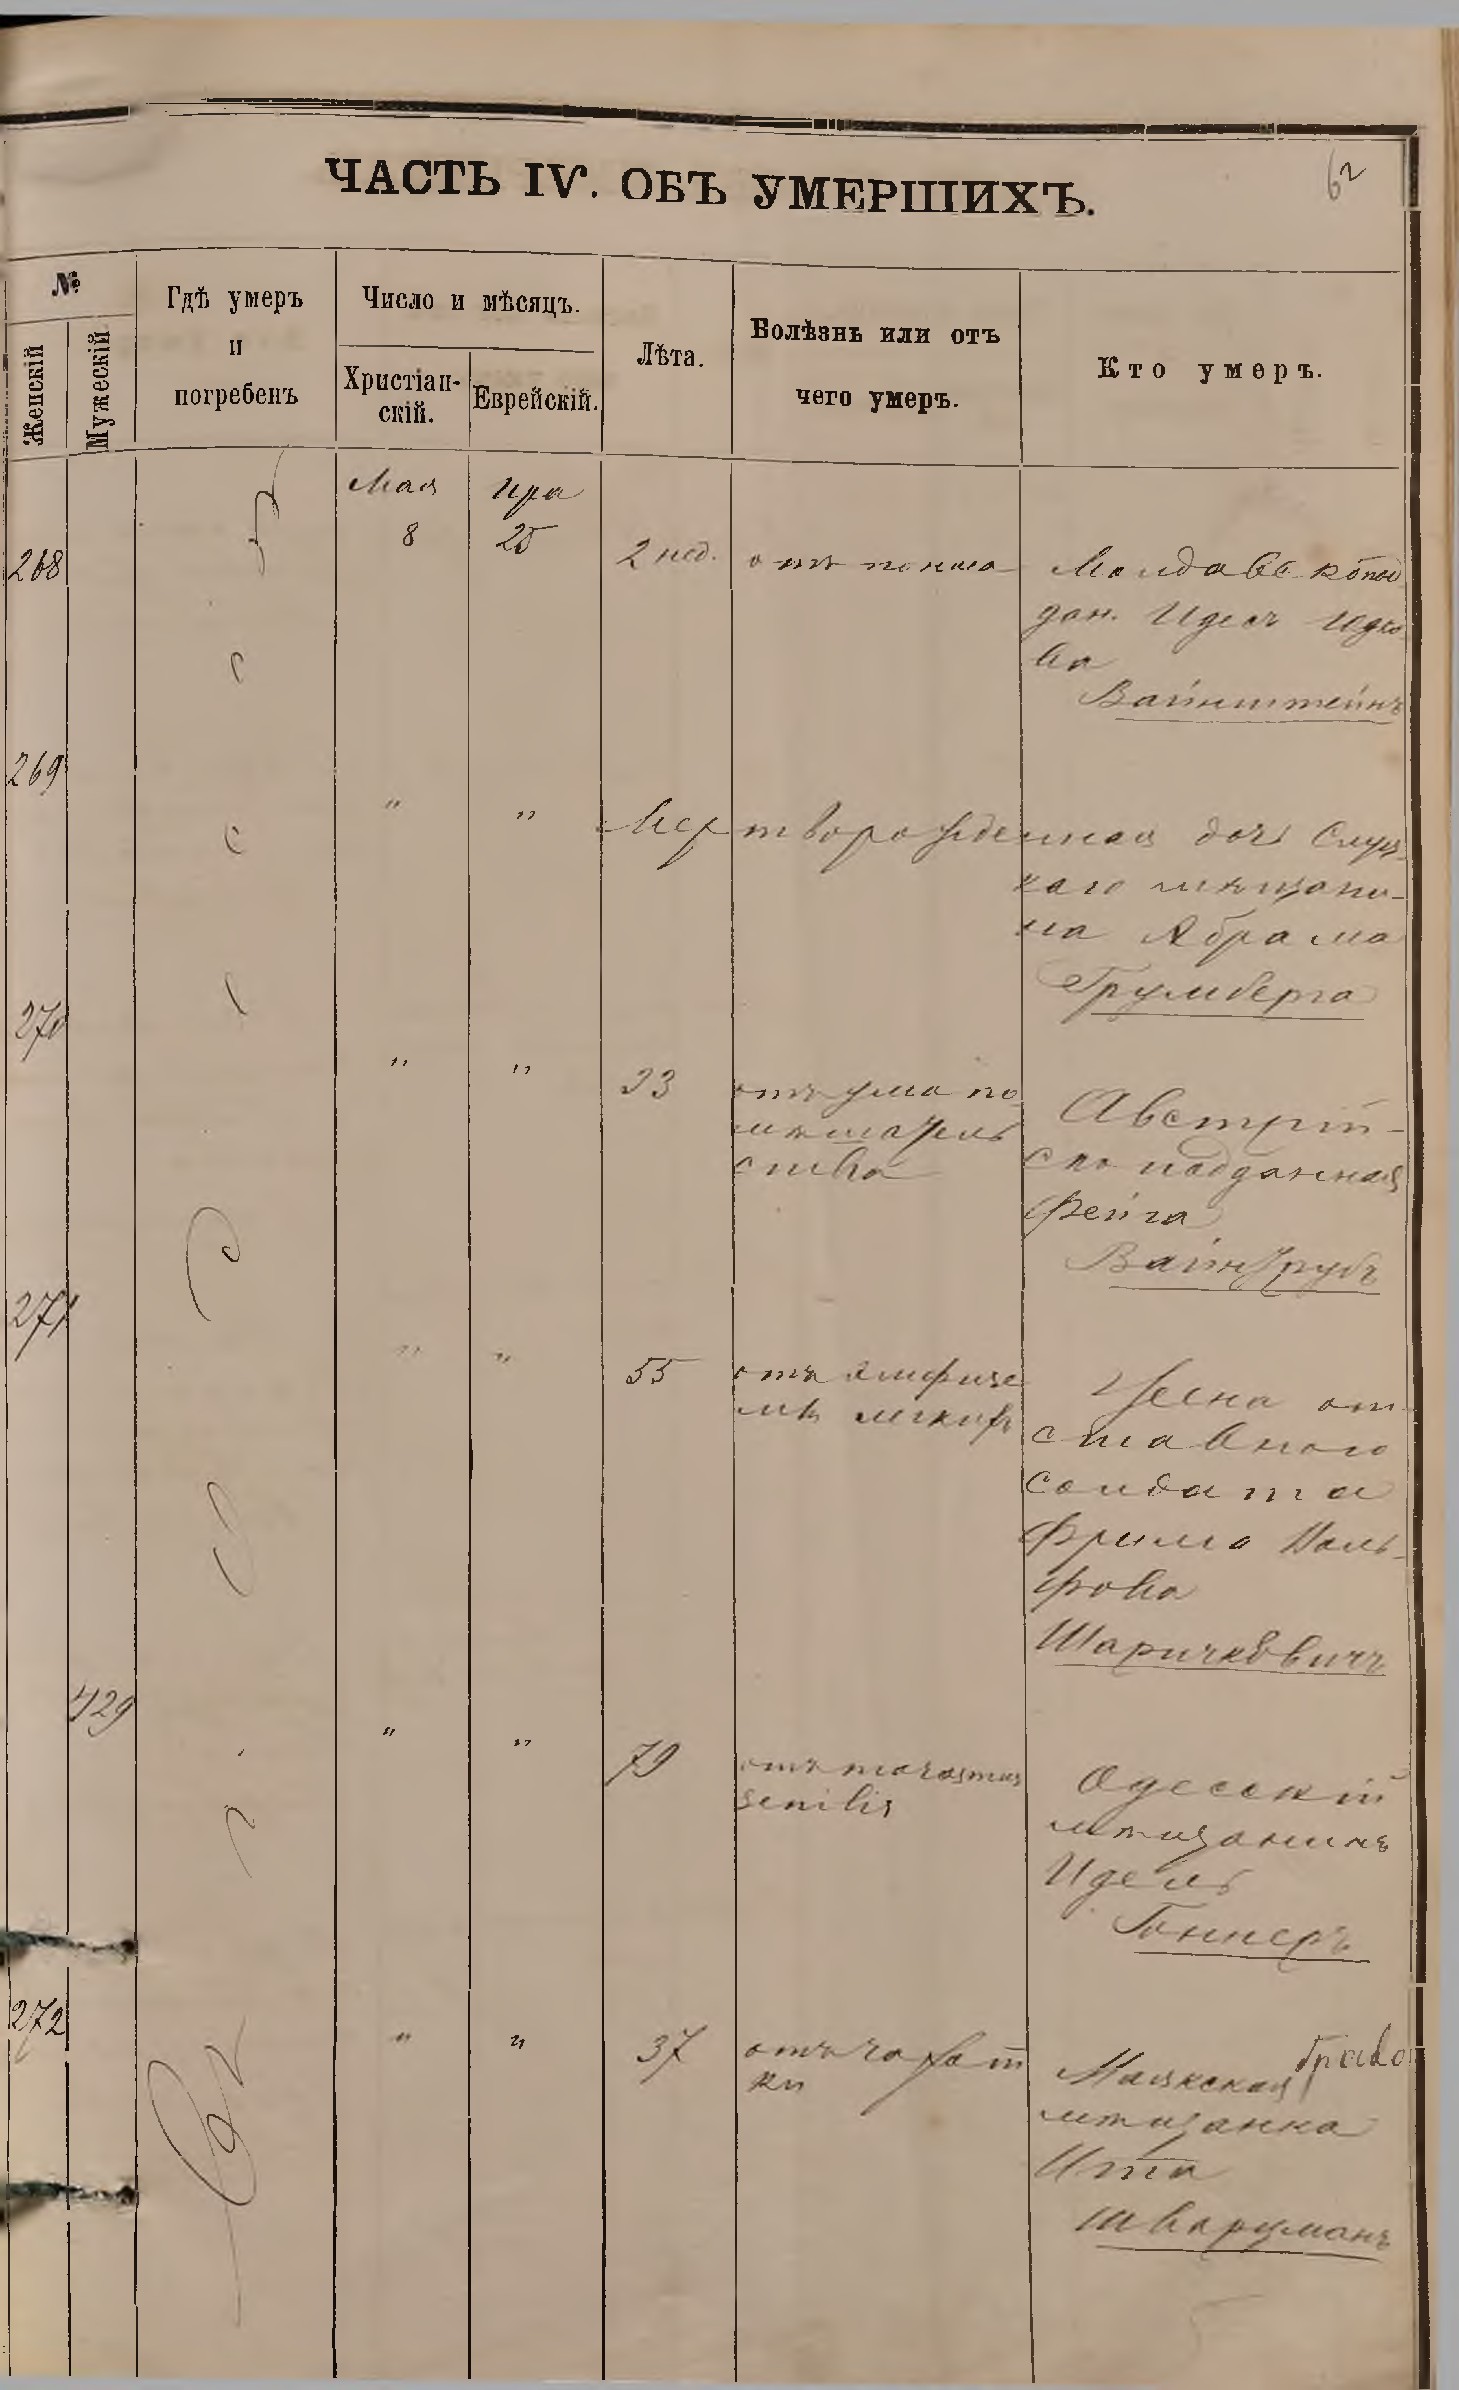 62
ЧАСТЬ IV. ОБЪ УМЕРШИХЪ.
№
Женскій
Мужескій
Гдѣ умеръ
и
погребенъ
Число и мѣсяцъ.
Христіан-
скій.
Еврейскій.
Лѣта.
Болѣзнь или отъ
чего умеръ.
Кто умеръ.
Мая
Ира
268
8
25
2 нед.
отъ поноса
Молдавскопод
дан. Идесъ Юдко
ва
Вайнштейнъ
269
"
"
Мерт ворожденная дочь Слуц-
каго мѣщани-
на Абрама
Грумберга
270
"
"
33
отъ ума по
мѣшатель
ства
Австрій-
ско подданная
Фейга
Вайнтрубъ
271
"
"
55
отъ эмфизе
мѣ легкихъ
Жена от
ставного
солдата
Фрима Воль-
фова
429
"
"
79
отъ marasmus
senilis
Одесскій
мѣщанинъ
Идель
272
"
"
37
отъ чахот
ки
Маякская
мѣщанка
Ита
Шварцманъ